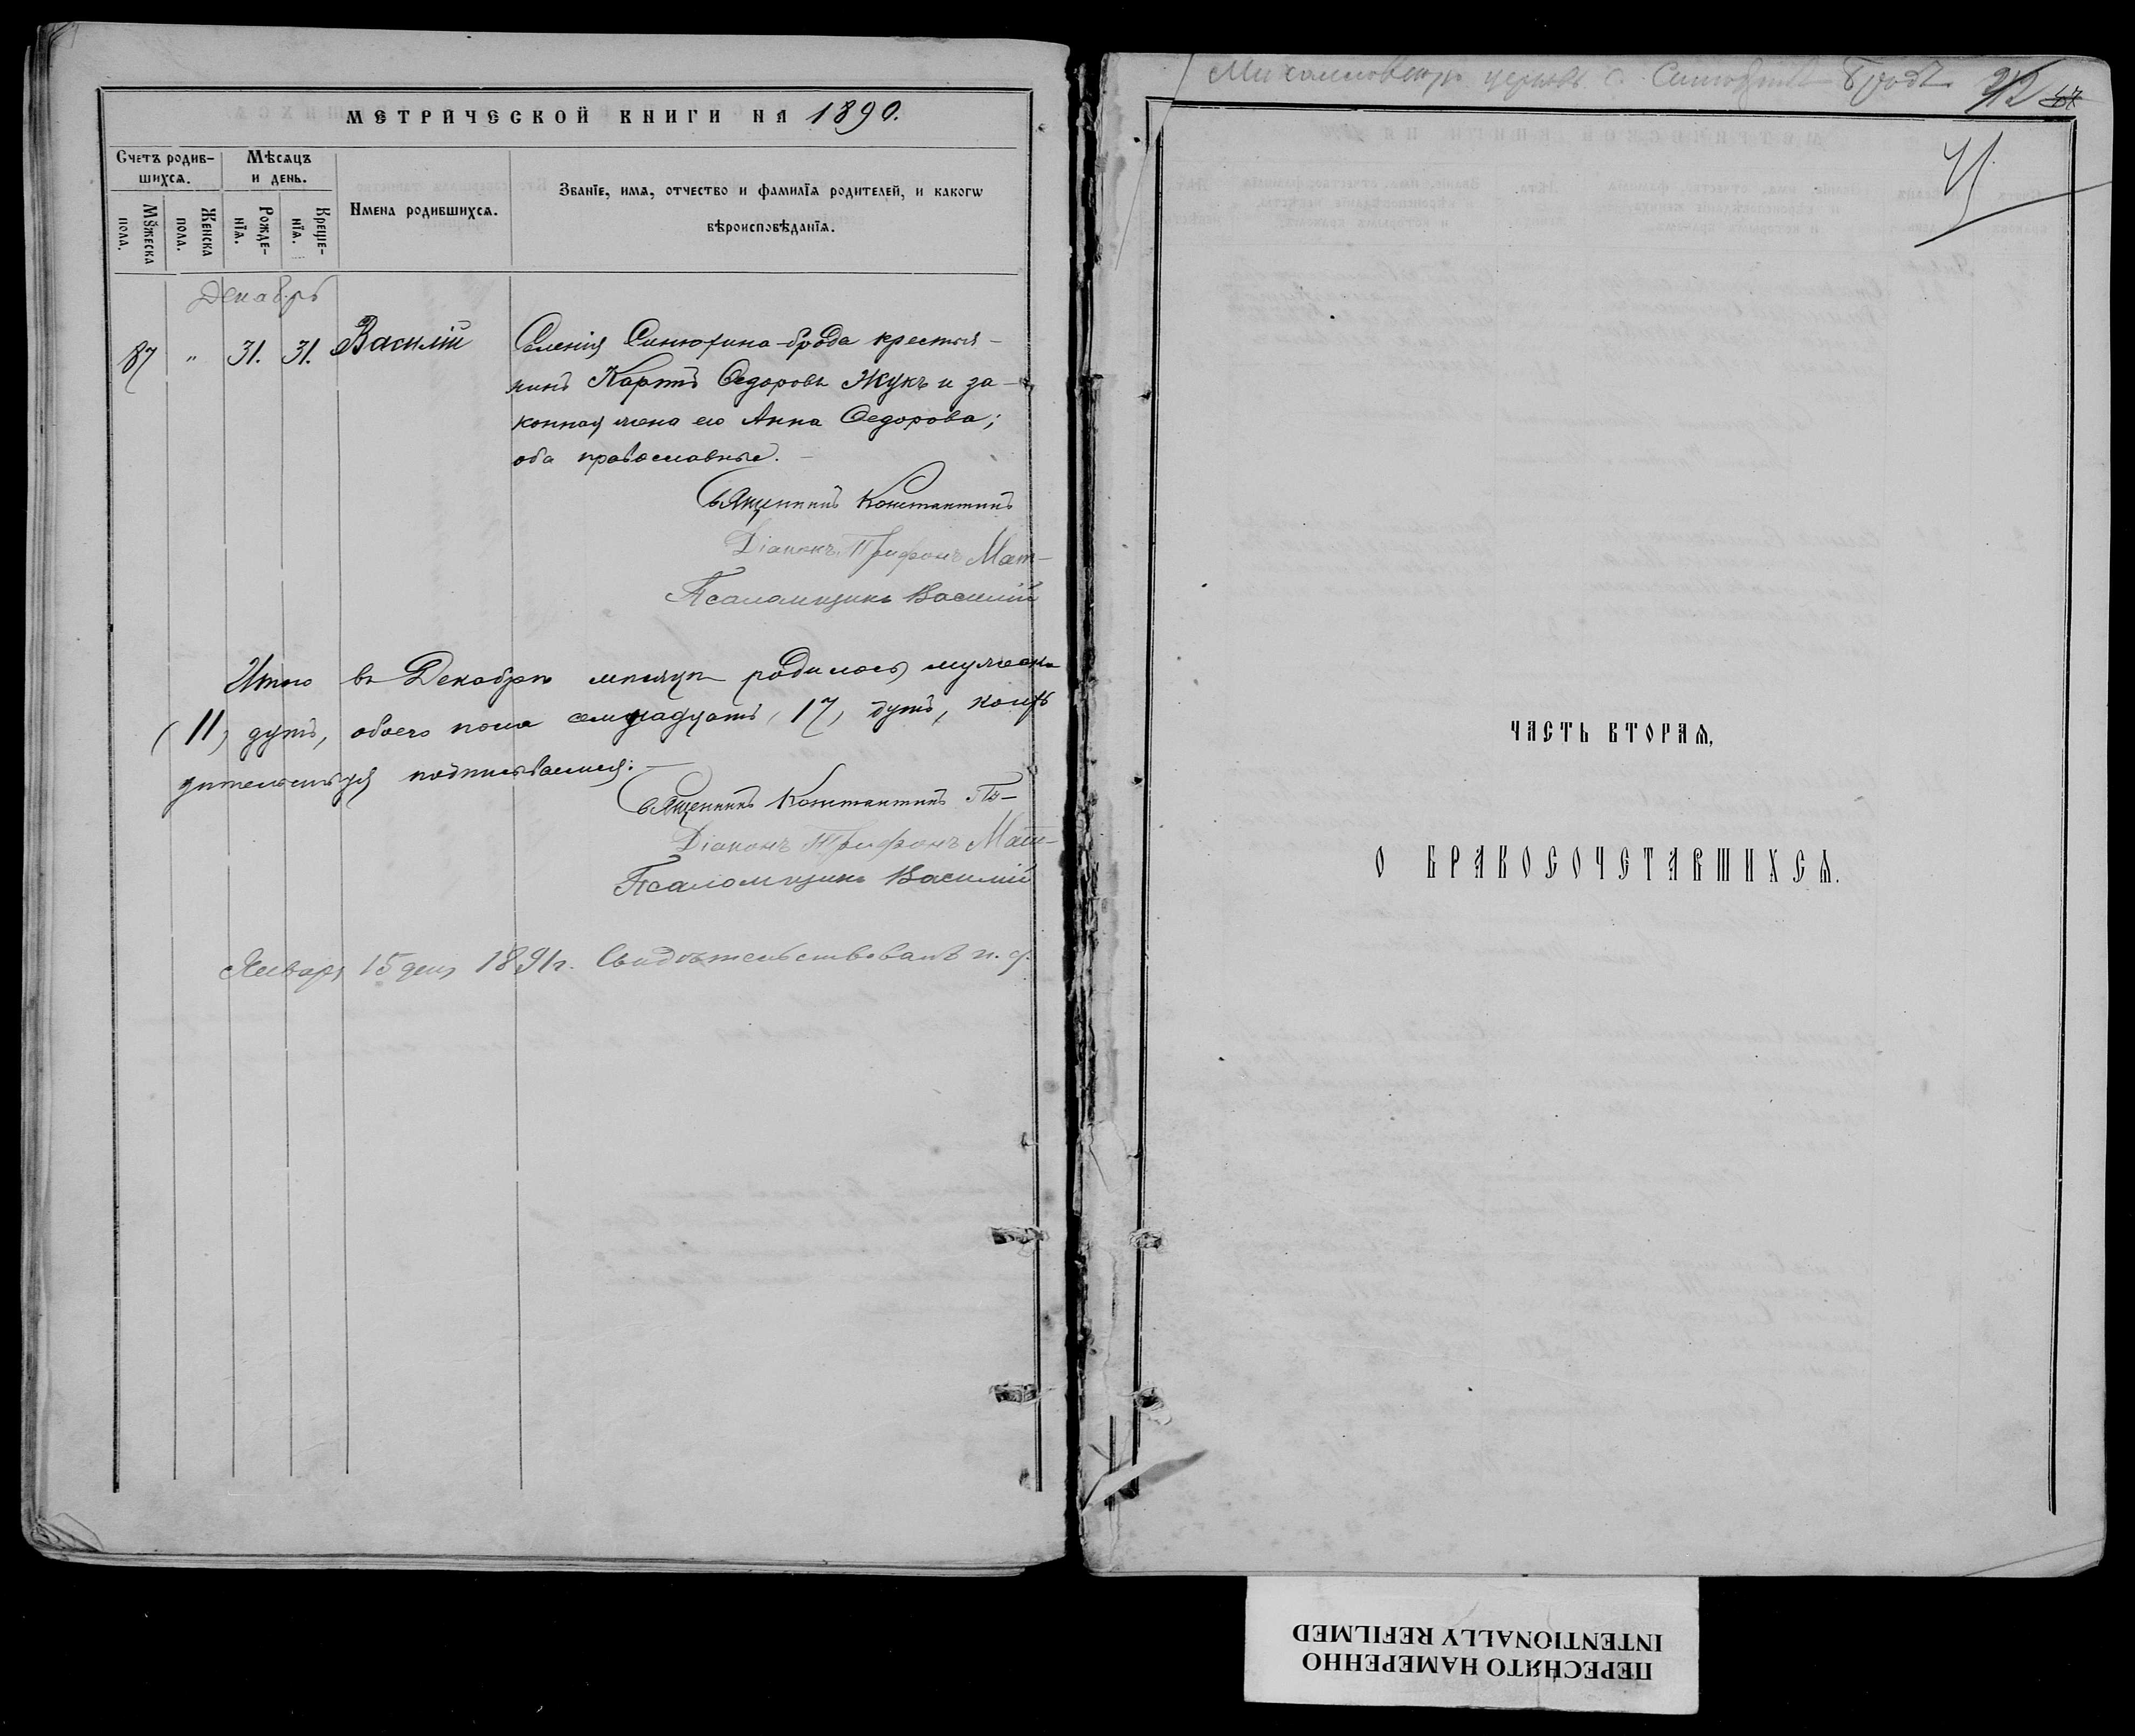 МЕТРИЧЕСКОЙ КНИГИ НА 1890.
Счетъ родив-
шихсѧ.
Мѣсѧцъ
и день.
Мꙋжеска
пола.
Женска
пола.
Рожде-
нїѧ.
Креще-
нїѧ.
Имена родившихсѧ.
Званїе, имѧ, отчество и фамилїѧ родителей, и какогѡ
вѣроисповѣданїѧ.
Декабрь
87 " 31. 31. Василій
Селенія Синюхина-брода крестья-
нинъ Карпъ Ѳедоровъ Жукъ и за-
конная жена его Анна Ѳедорова;
оба православные.
Священникъ Константинъ
Діаконъ Трифонъ Мат-
Псаломщикъ Василій
Итого въ Декабрѣ мѣсяцѣ родилось мужеска
(11) душъ, обоего пола семнадцать (17) душъ,
подписываемся:
Священникъ Константинъ По-
Діаконъ Трифонъ Мат-
Псаломщикъ Василій
Января 15 дня 1891 г. Свидѣтельствовалъ
церковь с. Синюхинъ Бродъ
212
ЧАСТЬ ВТОРАѦ,
О БРАКОСОЧЕТАВШИХСѦ.
ПЕРЕСНЯТО НАМЕРЕННО
INTENTIONALLY REFILMED